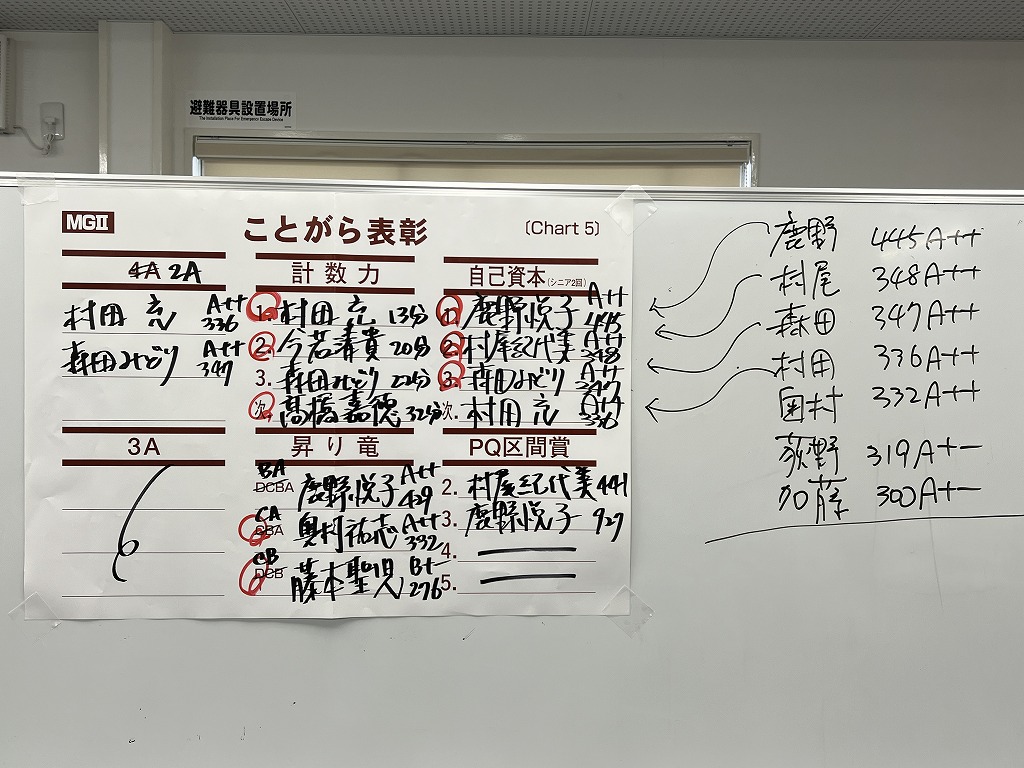 避難器具設置場所
The Installation Place For Emergency Escape Device
MGII
ことがら表彰
(Chart 5)
4A 2A
村田 亮 A++ 336
森田みどり A++ 347
計数力
1. 村田 亮 13分
2. 今若春貴 20分
3. 森田みどり 22分
次. 髙橋嘉徳 32分
自己資本(シニア2回)
1. 鹿野悦子 A++ 445
2. 村尾紀代美 A++ 348
3. 森田みどり A++ 347
次. 村田亮 A++ 336
3A
昇り竜
BA DCBA 鹿野悦子 A++ 429
CA CBA 奥村祐志 A++ 332
CB DCB 藤本聖児 B+- 276
PQ区間賞
2. 村尾紀代美 441
3. 鹿野悦子 927
4.
5.
鹿野 445A++
村尾 348A++
森田 347A++
村田 336A++
奥村 332A++
荻野 319A+-
加藤 300A+-